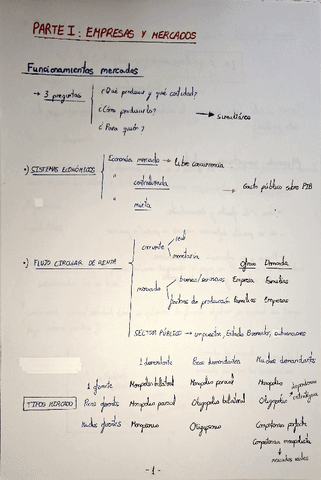 PARTE I: EMPRESAS Y MERCADOS
Funcionamientos mercados
→ 3 preguntas
¿Qué producir y qué cantidad?
¿Cómo producirlo? → simultánea
¿Para quién?
•) SISTEMAS ECONÓMICOS
Economía mercado → libre concurrencia
" centralizada → Gasto público sobre PIB
" mixta
•) FLUJO CIRCULAR DE RENTA
corriente real
monetaria
Oferta Demanda
mercado bienes/servicios Empresa Familias
factores de producción Familias Empresas
SECTOR PÚBLICO → impuestos, Estado Bienestar, subvenciones
1 demandante Pocos demandantes Muchos demandantes
1 oferente Monopolio bilateral Monopolio parcial Monopolio
TIPOS MERCADO Pocos oferentes Monopsonio parcial Oligopolio bilateral Oligopolio → estratégica
Muchos oferentes Monopsonio Oligopsonio Competencia perfecta
Competencia monopolística
↓
- 1 -